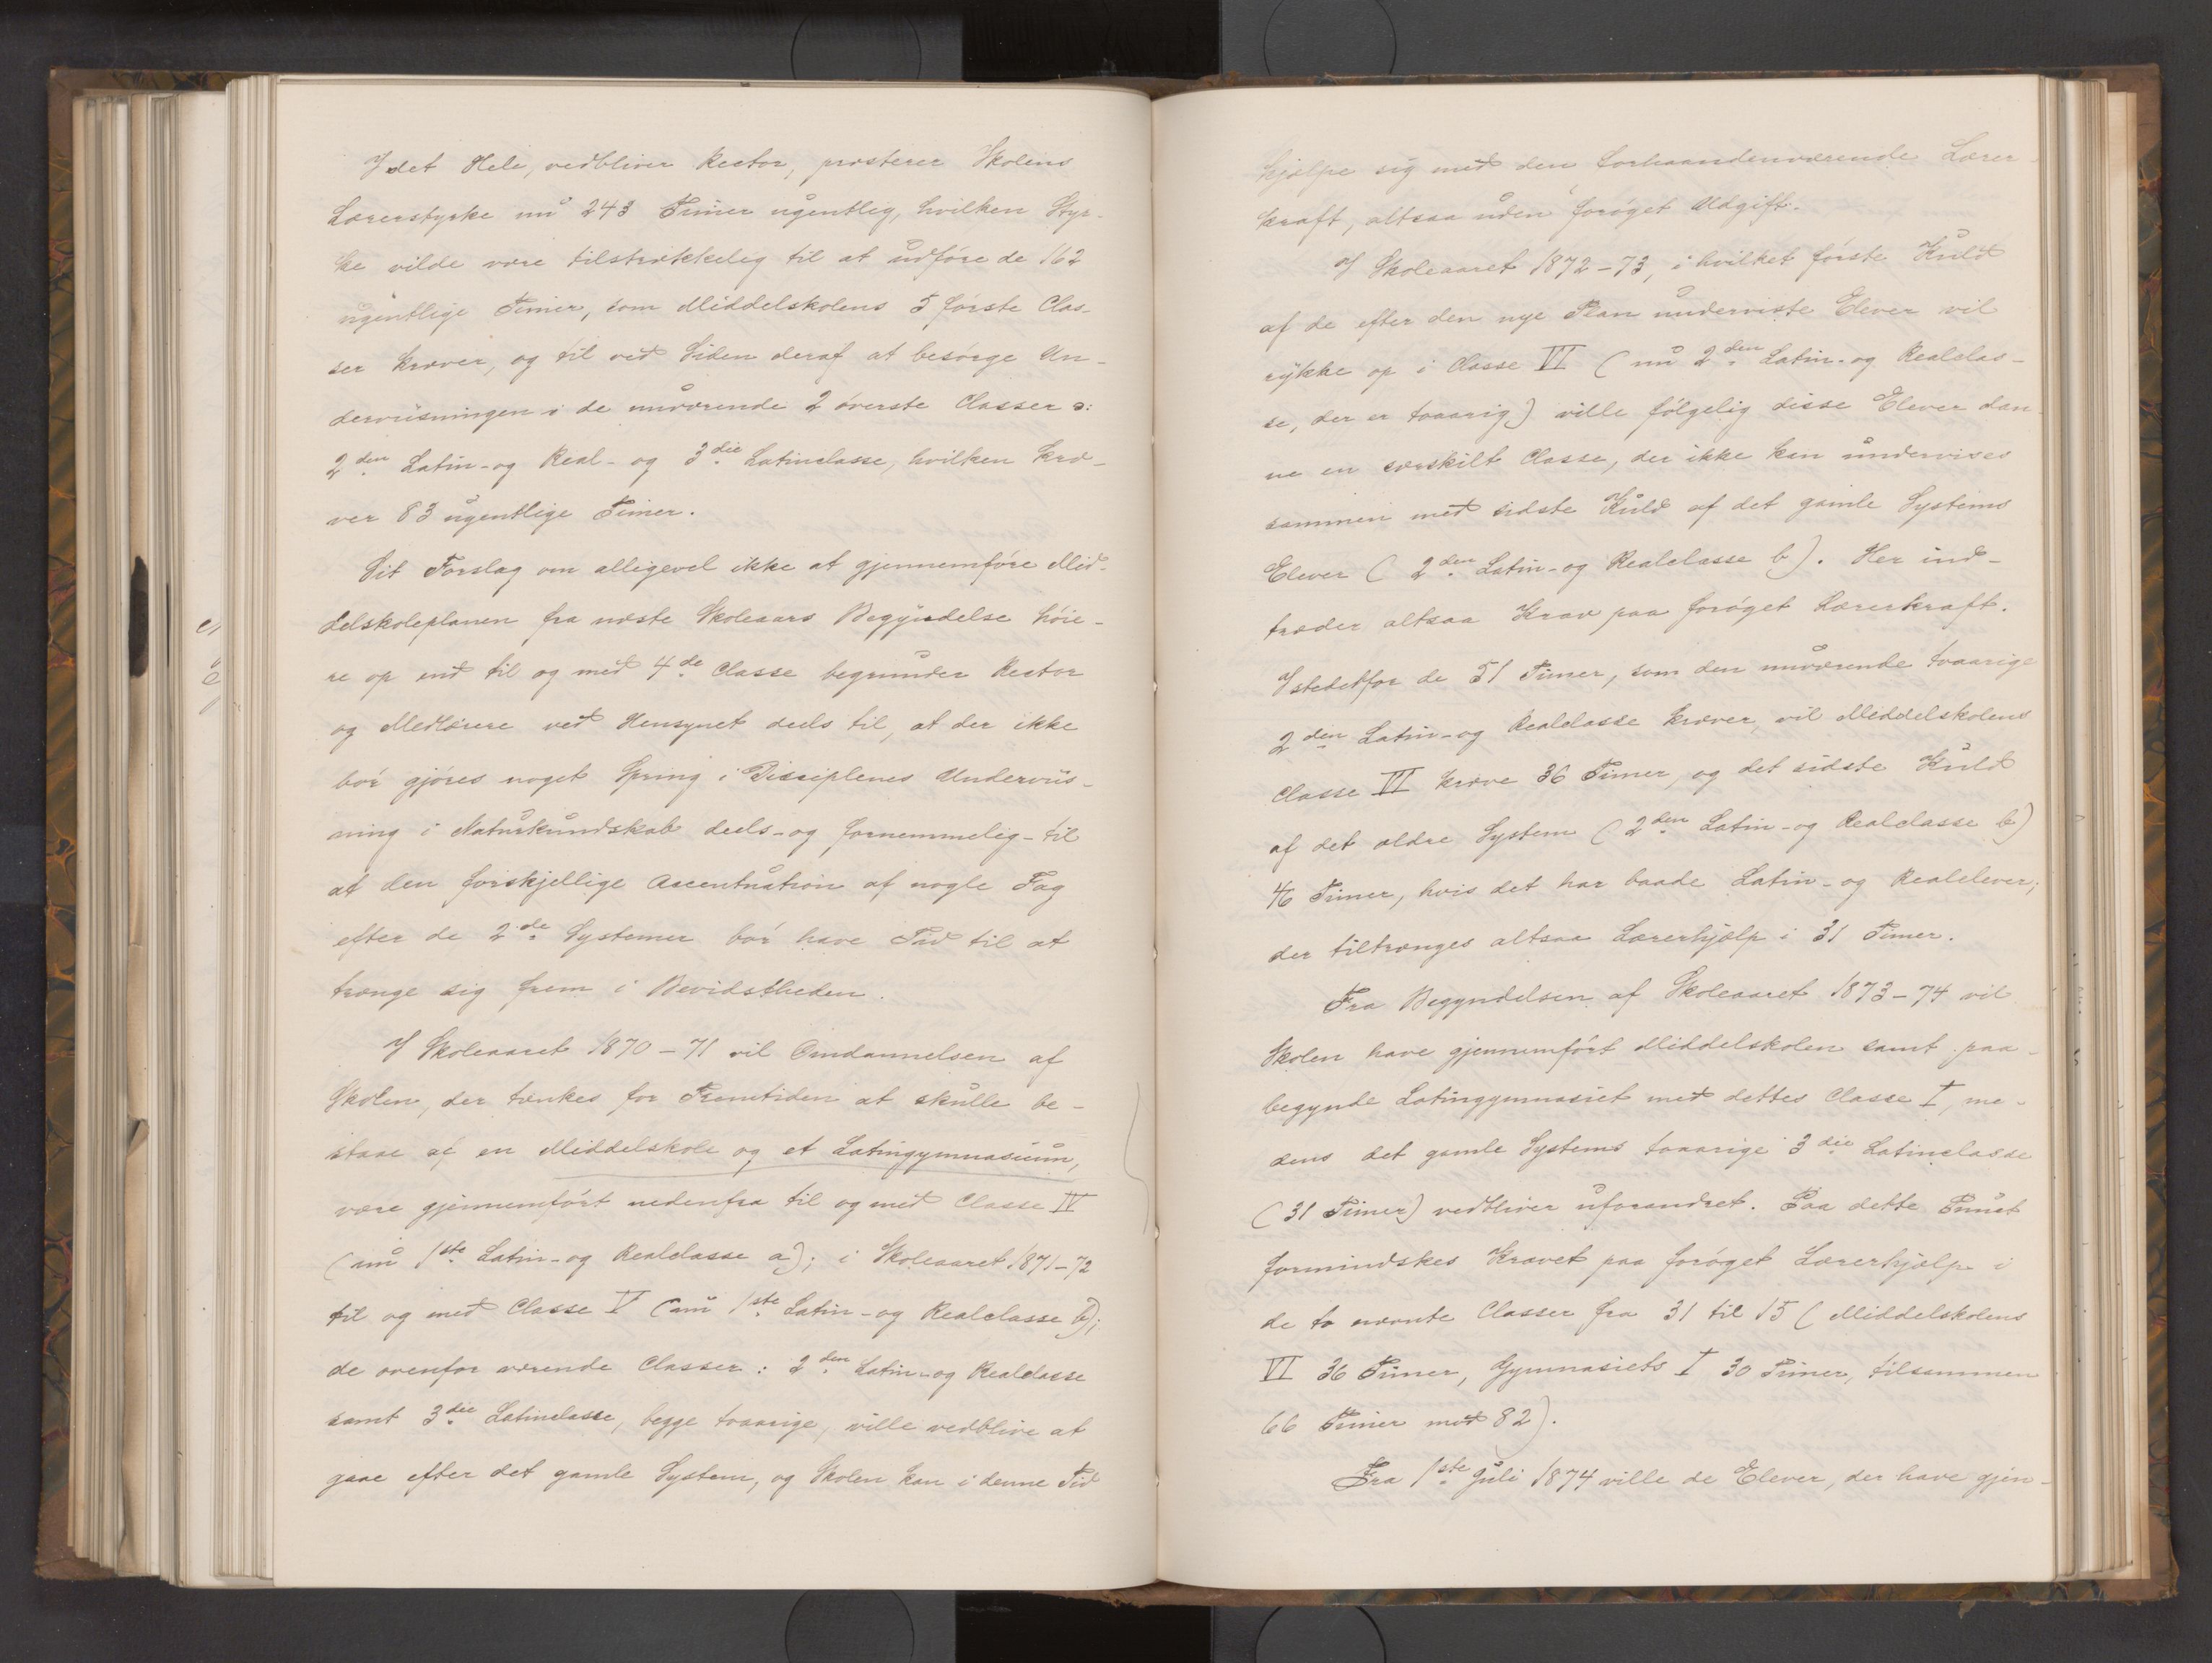 I det Hele, vedbliver Rector, præsterer Skolens
Lærerstyrke nu 243 Timer ugentlig, hvilken Styr-
ke vilde være tilstrækkelig til at udføre de 162
ugentlige Timer, som Middelskolens 5 første Clas-
ser kræver, og til ved Siden deraf at besørge Un-
derviisningen i de nuværende 2 øverste Classer ɔ:
2den Latin- og Real- og 3die Latinclasse, hvilken kræ-
ver 83 ugentlige Timer.
Sit Forslag om alligevel ikke at gjennemføre Mid-
delskoleplanen fra næste Skoleaars Begyndelse høie-
re op end til og med 4de Classe begrunder Rector
og Medlærere ved Hensynet deels til, at der ikke
bør gjøres noget Spring i Disciplenes Underviis-
ning i Naturkundskab deels - og fornemmelig - til
at den forskjellige Accentuation af nogle Fag
efter de 2de Systemer bør have Tid til at
trænge sig frem i Bevidstheden.
I Skoleaaret 1870-71 vil Omdannelsen af
Skolen, der tænkes for Fremtiden at skulle be-
staae af en Middelskole og et Latingymnasium,
være gjennemført nedenfra til og med Classe IV
(nu 1ste Latin- og Realclasse a); i Skoleaaret 1871-72
til og med Classe V (nu 1ste Latin- og Realclasse b);
de ovenfor værende Classer: 2den Latin- og Realclasse
samt 3die Latinclasse, begge toaarige, ville vedblive at
gaae efter det gamle System, og Skolen kan i denne Tid
hjælpe sig med den forhaandenværende Lærer-
kraft, altsaa uden forøget Udgift.
I Skoleaaret 1872-73, i hvilket første Kuld
af de efter den nye Plan underviste Elever vil
rykke op i Classe VI (nu 2den Latin- og Realclas-
se, der er toaarig) ville følgelig disse Elever dan-
ne en særskilt Classe, der ikke kan undervises
sammen med sidste Kuld af det gamle Systems
Elever (2den Latin- og Realclasse b). Her ind-
træder altsaa Krav paa forøget Lærerkraft.
Istedetfor de 51 Timer, som den nuværende toaarige
2den Latin- og Realclasse kræver, vil Middelskolens
Classe VI kræve 36 Timer, og det sidste Kuld
af det ældre System (2den Latin- og Realclasse b)
46 Timer, hvis det har baade Latin- og Realelever;
der tiltrænges altsaa Lærerhjælp i 31 Timer.
Fra Begyndelsen af Skoleaaret 1873-74 vil
Skolen have gjennemført Middelskolen samt paa-
begynde Latingymnasiet med dettes Classe I, me-
dens det gamle Systems toaarige 3die Latinclasse
(31 Timer) vedbliver uforandret. Paa dette Punct
formindskes Kravet paa forøget Lærerhjælp i
de to nævnte Classer fra 31 til 15 (Middelskolens
VI 36 Timer, Gymnasiets I 30 Timer, tilsammen
66 Timer mod 82).
Fra 1ste Juli 1874 ville de Elever, der have gjen-